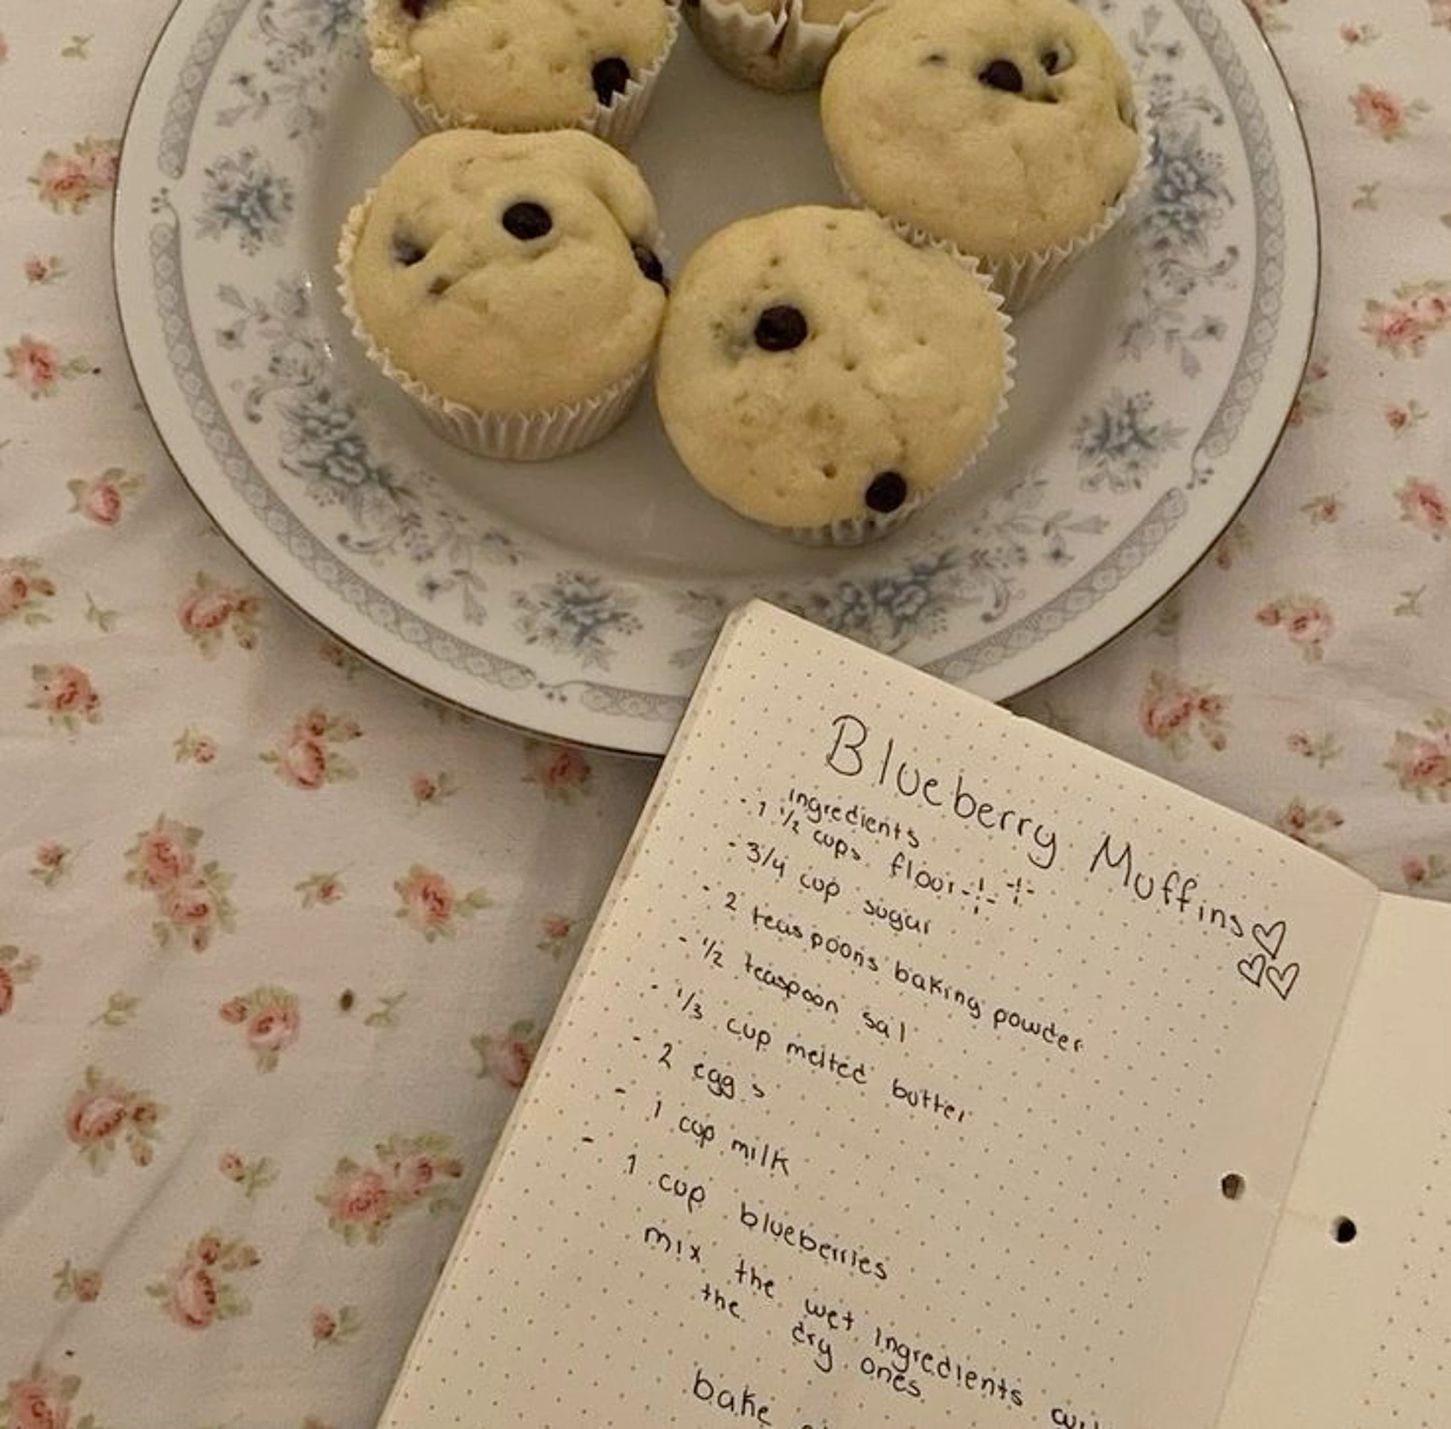 Blueberry Muffins
ingredients
- 1 1/2 cups flour
- 3/4 cup sugar
- 2 teaspoons baking powder
- 1/2 teaspoon sal
- 1/3 cup melted butter
- 2 eggs
- 1 cup milk
- 1 cup blueberries
mix the wet ingredients
the dry ones
bake